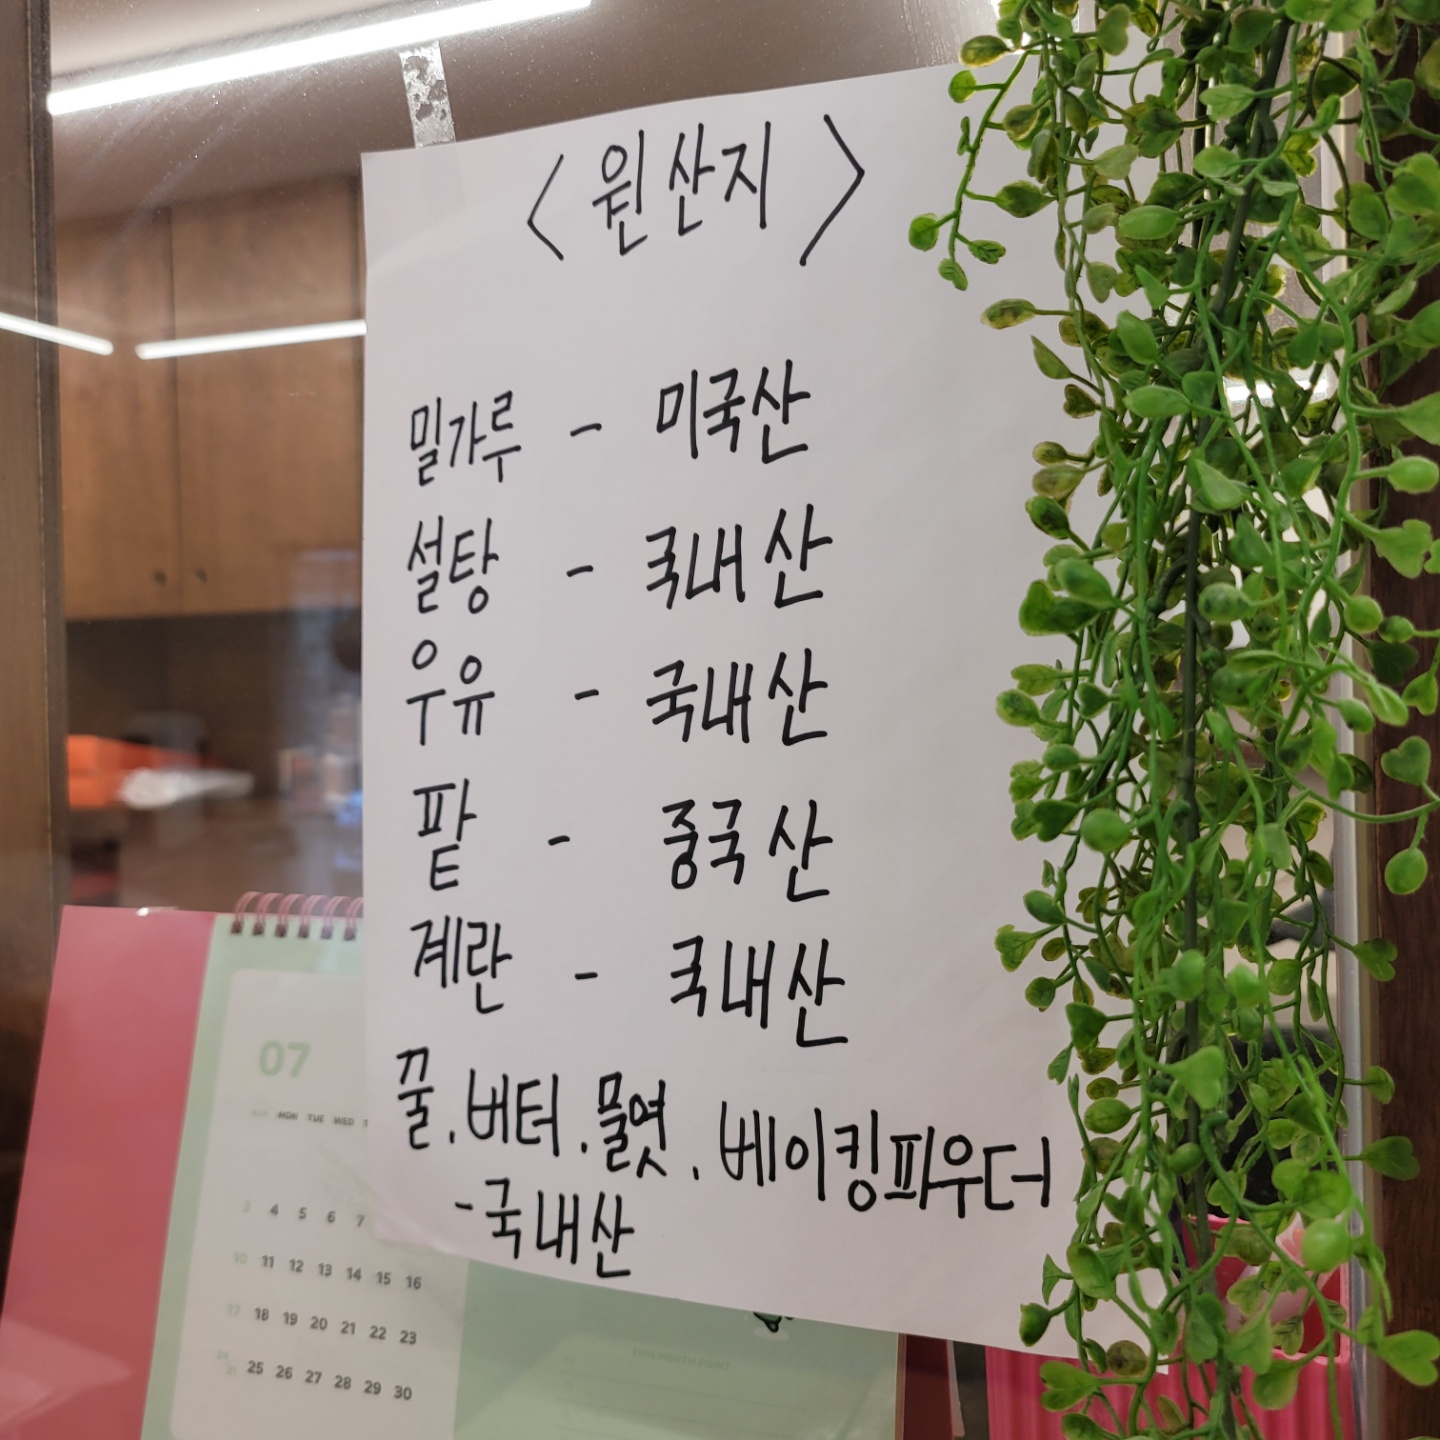 < 원산지 >
밀가루 - 미국산
설탕 - 국내산
우유 - 국내산
팥 - 중국산
계란 - 국내산
꿀. 버터. 물엿. 베이킹파우더
- 국내산
07
MON TUE WED
3 4 5 6 7
10 11 12 13 14 15 16
17 18 19 20 21 22 23
24 31 25 26 27 28 29 30
THIS MONTH POINT